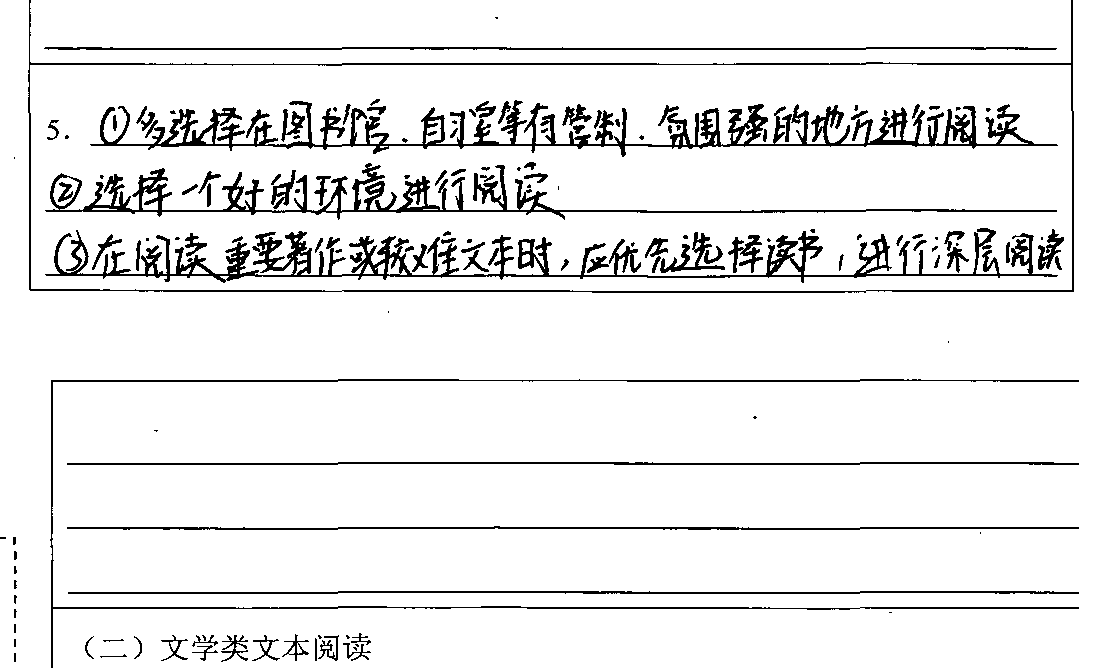 5. ①多选择在图书馆、自习室等有管制、氛围强的地方进行阅读
②选择一个好的环境进行阅读
③在阅读重要著作或较难文本时，应优先选择读书，进行深层阅读
（二）文学类文本阅读